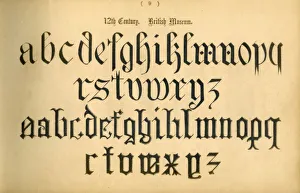 12th Century. British Museum.
abcdefghiklmnopq
rstvwxyz
abcdefghiklmnopq
rstvwxyz